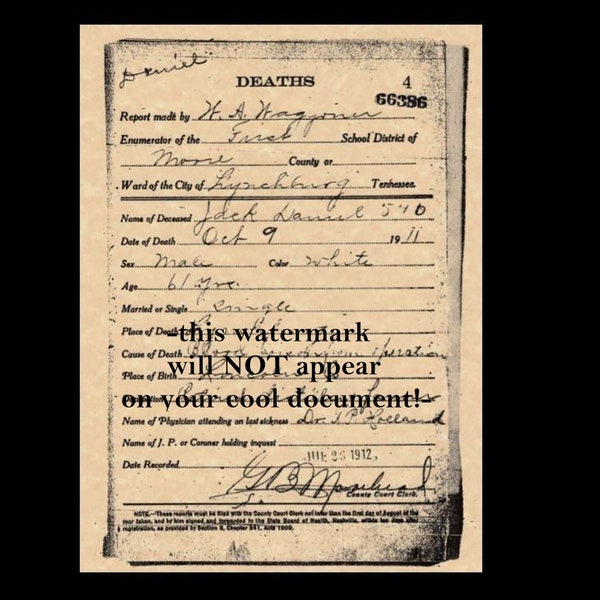 Daniel
DEATHS 4
66386
Report made by W. A. Waggoner
Enumerator of the First School District of
Moore County or
Ward of the City of Lynchburg Tennessee.
Name of Deceased Jack Daniel 540
Date of Death Oct 9 1911
Sex Male Color White
Age 61 Yrs.
Married or Single Single
Place of Death
-this watermark
Cause of Death Blood from Operation
will NOT appear
Place of Birth
on your cool document!-
Name of Physician attending on last sickness Dr. T. P. Holland
Name of J. P. or Coroner holding inquest
Date Recorded JUL 26 1912
G B Morehead
County Court Clerk.
NOTE.—These reports must be filed with the County Court Clerk not later than the first day of August of the
year taken, and by him signed and forwarded to the State Board of Health, Nashville, within ten days after
registration, as provided by Section 8, Chapter 841, Acts 1909.